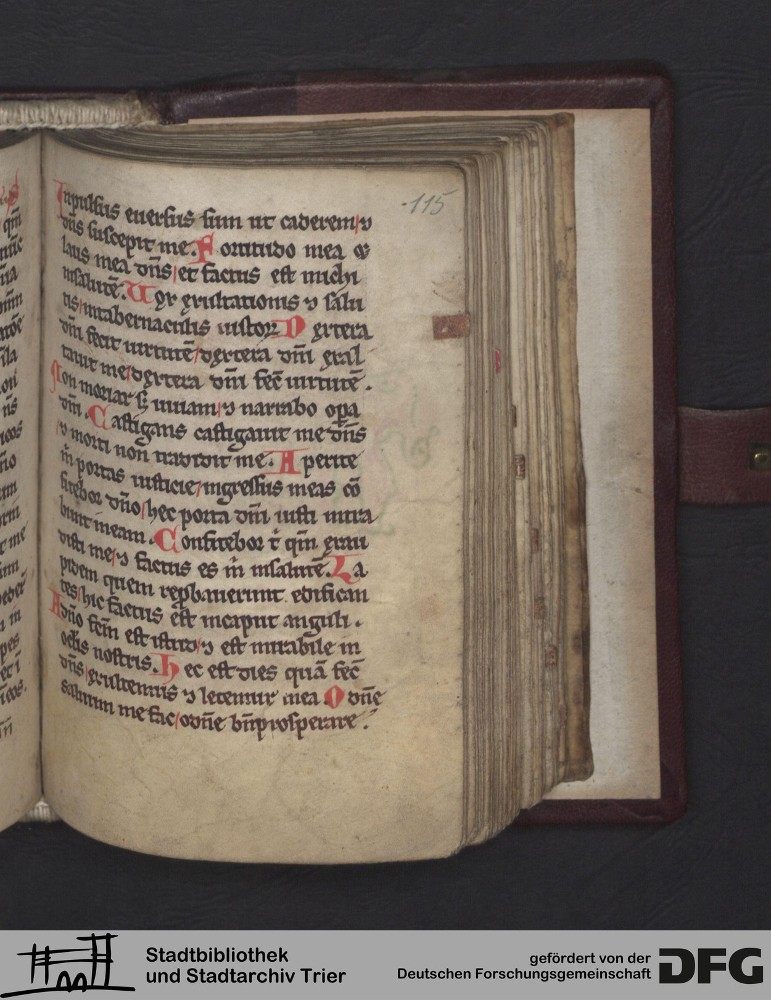 115
Inpulsus euersus sum ut caderem / ⁊
dñs suscepit me. Fortitudo mea ⁊
laus mea dñs / et factus est michi
insalutē. Uox exultationis ⁊ salu
tis / intabernaculis iustoꝝ Dextera
dñi fecit uirtutē / dextera dñi exal
tauit me / dextera dñi fec̄ uirtutē.
Non moriar sꝫ uiuam / ⁊ narrabo opa
dñi. Castigans castigauit me dñs
⁊ morti non tradidit me. Aperite
m̄ portas iusticie / ingressus meas cō
fitebor dño / hec porta dñi iusti intra
bunt ineam. Confitebor t̄ qm̄ exau
disti me / ⁊ factus es m̄ insalutē. La
pidem quem reprobauerunt edifican
tes / hic factus est incaput anguli.
A dño fc̄m est istud / ⁊ est mirabile in
oclis nostris. Hec est dies quā fec̄
dñs / exultemus ⁊ letemur inea O dñe
saluum me fac / o dñe bn̄ prosperare.
Stadtbibliothek
und Stadtarchiv Trier
gefördert von der
Deutschen Forschungsgemeinschaft
DFG